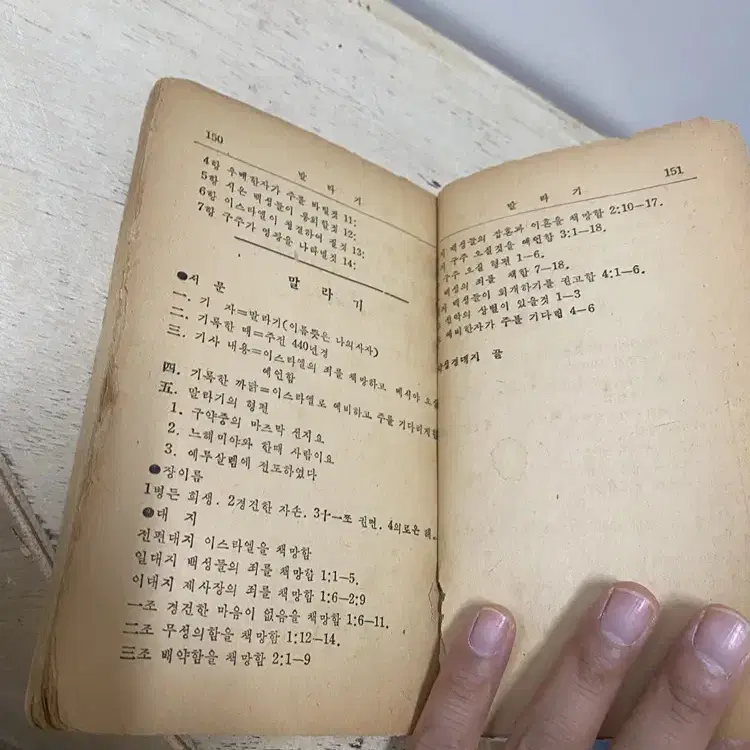 150
말라기
4항 우매한자가 주를 바릴것 11:
5항 시온 백성들이 통회할것 12:
6항 이스라엘이 청결하여 질것 13:
7항 구주가 영광을 나타낼것 14:
말라기
●서문
一. 기 자=말라기(이름뜻은 나의사자)
二. 기록한 때=주전 440년경
三. 기사 내용=이스라엘의 죄를 책망하고 메시아 오실
예언함
四. 기록한 까닭=이스라엘로 예비하고 주를 기다리게함
五. 말라기의 형편
1. 구약중의 마즈막 선지요
2. 느헤미야와 한때 사람이요
3. 예루살렘에 전도하였다
●장이름
1병든 희생. 2경건한 자손. 3十一쪼 권면. 4의로운 해.
●대 지
전편대지 이스라엘을 책망함
일대지 백성들의 죄를 책망함 1:1—5.
이대지 제사장의 죄를 책망함 1:6—2:9
一조 경건한 마음이 없음을 책망함 1:6—11.
二조 무성의함을 책망함 1:12—14.
三조 배약함을 책망함 2:1—9
말라기
151
백성들의 잡혼과 이혼을 책망함 2:10—17.
구주 오실것을 예언함 3:1—18.
구주 오실 형편 1—6.
백성의 죄를 책함 7—18.
백성들이 회개하기를 권고함 4:1—6.
선악의 상벌이 있을것 1—3
예비한자가 주를 기다림 4—6
성경대지 끝